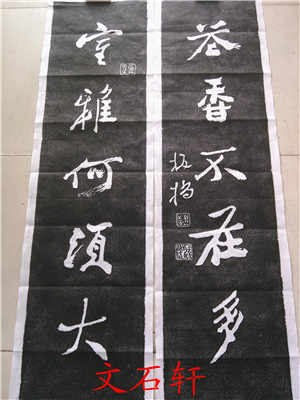 花香不在多
板橋
室雅何須大
文石轩